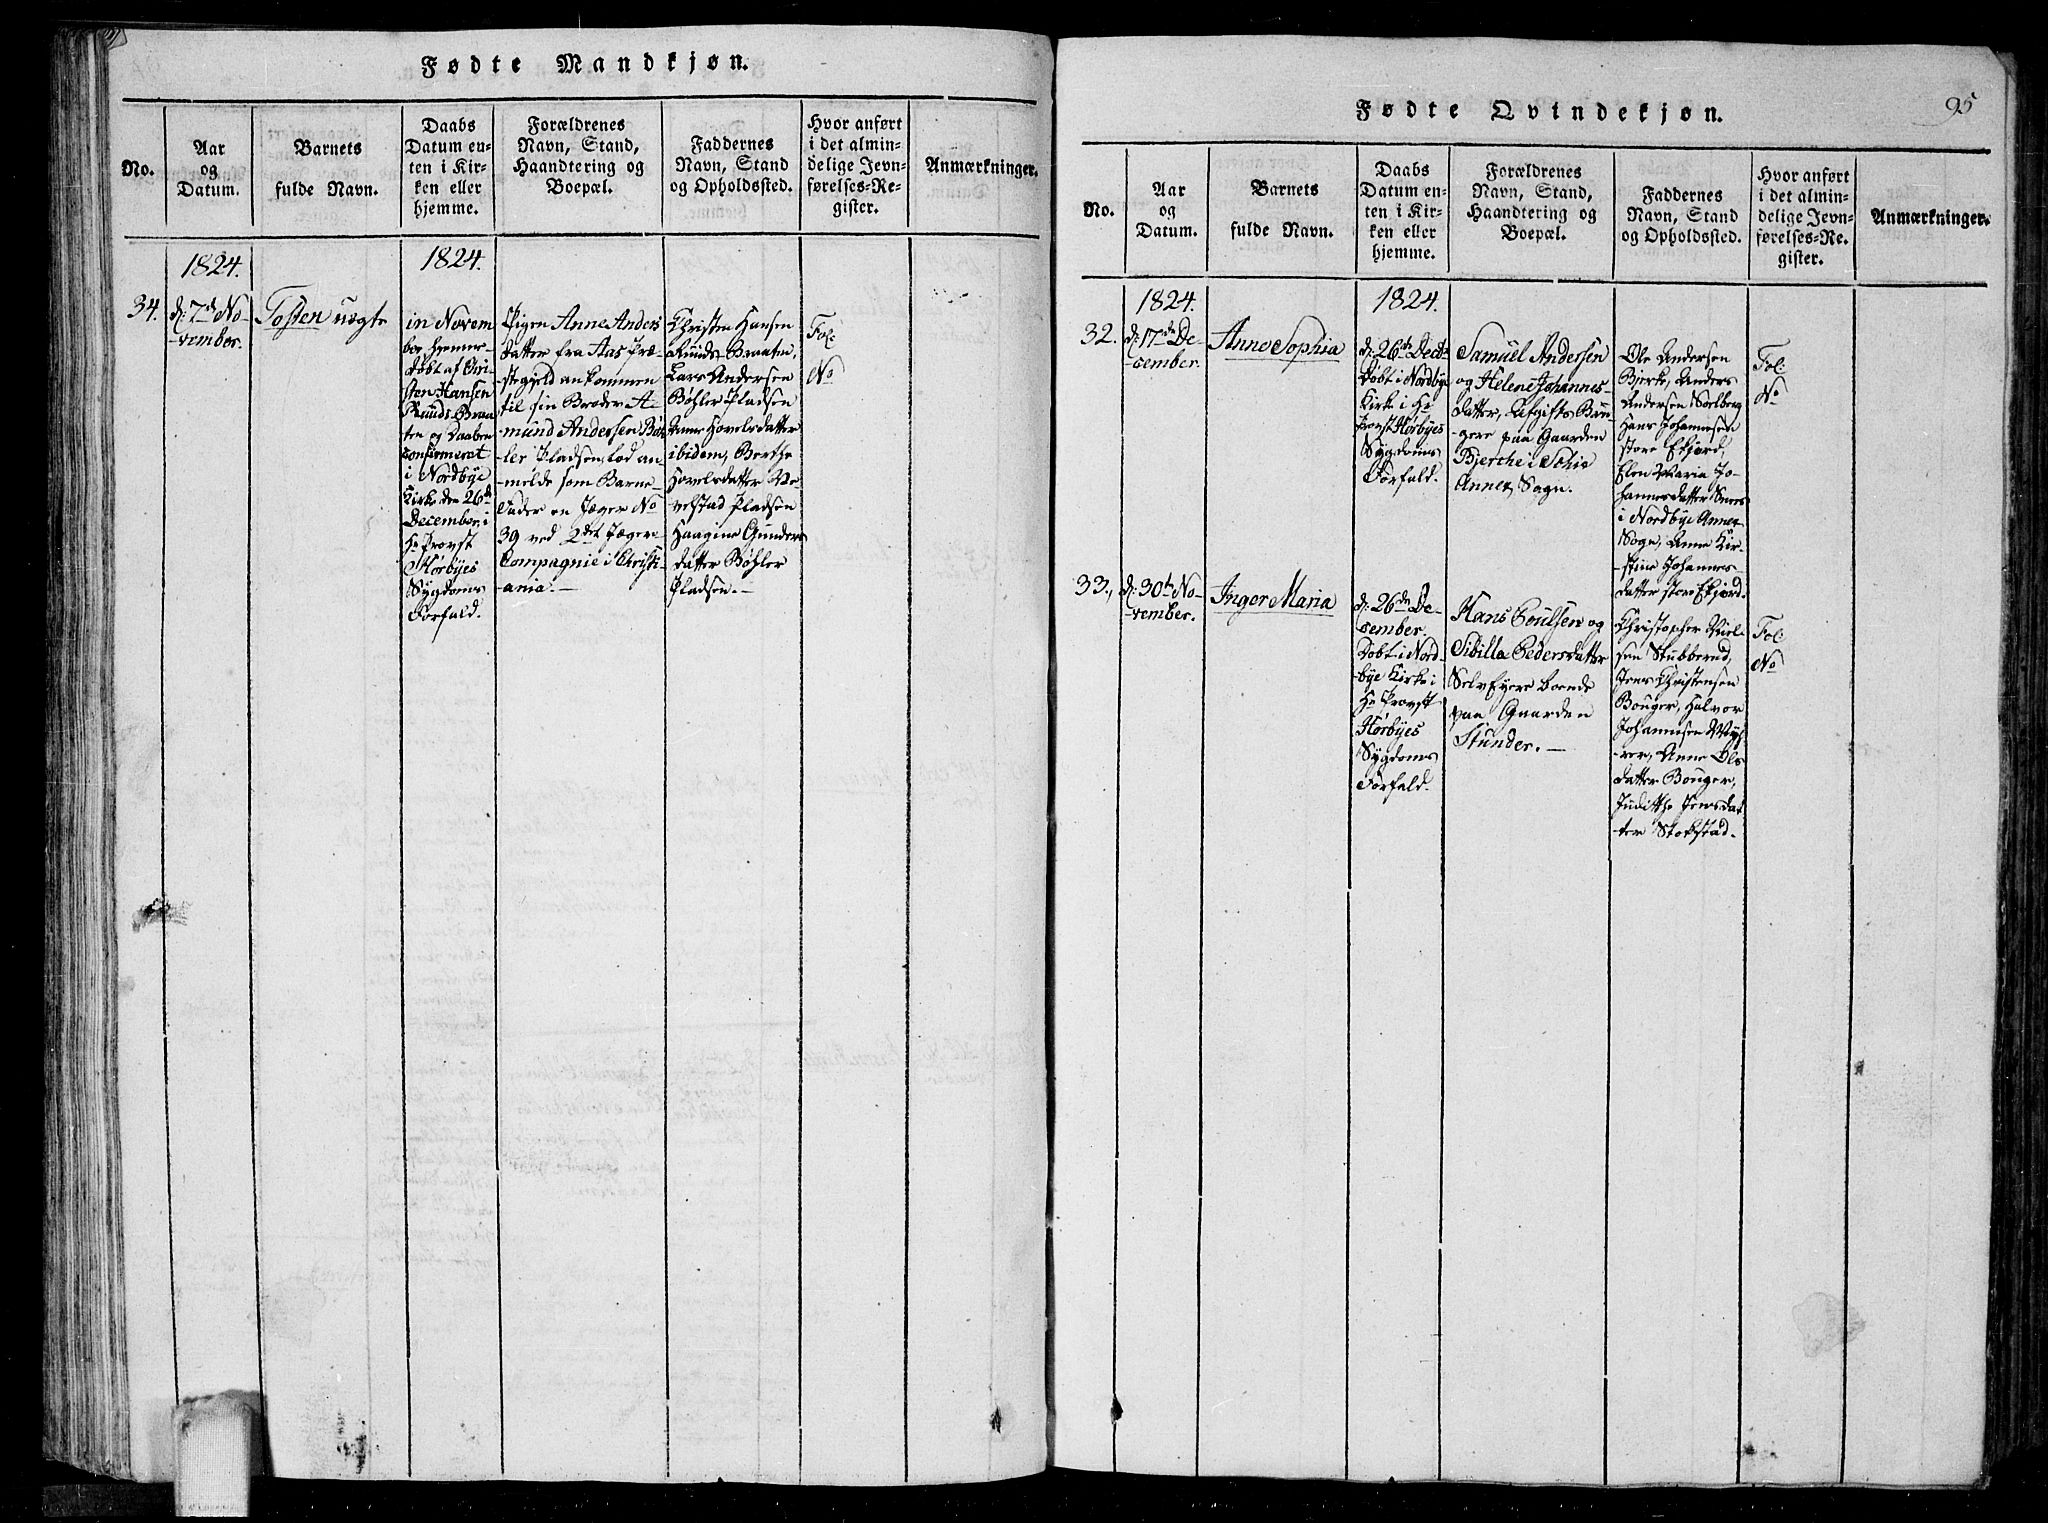 Fødte Mandkjøn.
No.
Aar
og
Datum.
Barnets
fulde Navn.
Daabs
Datum en-
ten i Kir-
ken eller
hjemme.
Forældrenes
Navn, Stand,
Haandtering og
Boepæl.
Faddernes
Navn, Stand
og Opholdssted.
Hvor anført
i det almin-
delige Jevn-
førelses-Re-
gister.
Anmærkninger.
1824.
1824.
34.
d: 7de No-
-vember.
Tosten uægte
in Novem
ber hjemme-
døbt af Chri-
sten Hansen
Ruuds Braa
ten og Daaben
confirmeret
i Nordbye
Kirke den 26de
December, i
Hr Provst
Hørbyes
Sygdoms
Forfald.
Pigen Anne Anders
datter fra Aas Præ-
-stegjeld ankommen
til sin Broder A-
-mund Andersen Bøh
ler Pladsen, lod an-
-melde som Barne
Fader en Jæger No
39 ved 2det Jæger-
Compagnie i Christi-
ania.-
Christen Hansen
Ruuds Braaten,
Lars Andersen
Bøhler Pladsen
Anne Hovelsdatter
ibidem, Berthe
Hovelsdatter
Pladsen
Haagine Gunders
datter Bøhler
Pladsen.-
Fol:
No
95
Fødte Qvindekjøn.
No.
Aar
og
Datum.
Barnets
fulde Navn.
Daabs
Datum en-
ten i Kir-
ken eller
hjemme.
Forældrenes
Navn, Stand,
Haandtering og
Boepæl.
Faddernes
Navn, Stand
og Opholdssted.
Hvor anført
i det almin-
delige Jevn-
førelses-Re-
gister.
Anmærkninger.
1824.
1824.
32.
d: 17de De-
-cember.
Anne Sophia
d: 26de Decbr
Døbt i Nordbye
Kirke i Hr
Provst Hørbyes
Sygdoms
Forfald.
Samuel Andersen
og Helene Johannes
datter, Afgifts Bru
-gere paa Gaarden
Bjerche i Schie
Annex Sogn.
Ole Andersen
Bjerke, Anders
Andersen Solberg
Hans Johannesen
store Ekjord,
Elen Maria Jo-
hannesdatter
i Nordbye Annex
Sogn, Anne Kir-
stine Johannes-
datter store Ekjord.
Fol:
No
33.,
d: 30te No-
-vember.
Inger Maria
d: 26de De-
cember.
Døbt i Nord-
bye Kirke i
Hr Provst
Hørbyes
Sygdoms
Forfald.
Hans Poulsen og
Sibilla Pedersdatter
Selv Eyere boende
paa Gaarden
Stunder.-
Christopher Niel-
sen Stubberud,
Jens Christensen
Bouger, Halvor
Johannesen Myh
rer, Anne Ols
datter Bouger,
Judithe Jensdat
-ter Stokstad.
Fol:
No